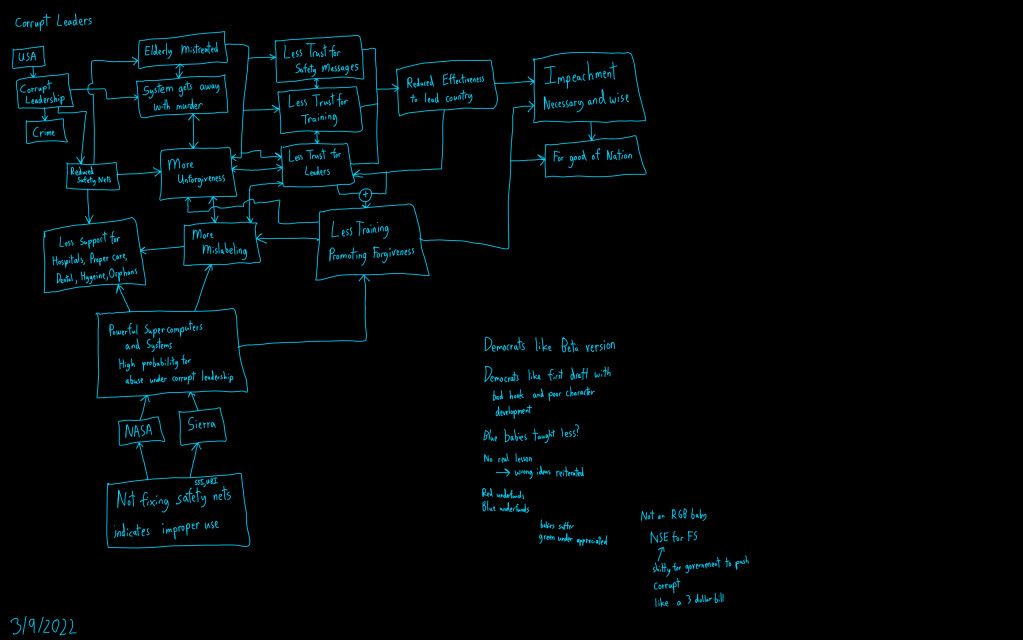 Corrupt Leaders
USA
Corrupt
Leadership
Crime
Reduced
Safety Nets
Elderly Mistreated
System gets away
with murder
More
Unforgiveness
Less Trust for
Safety Messages
Less Trust for
Training
Less Trust for
Leaders
Reduced Effectiveness
to lead country
Impeachment
Necessary and wise
For good of Nation
+
Less Support for
Hospitals, Proper care,
Dental, Hygeine, Orphans
More
Mislabeling
Less Training
Promoting Forgiveness
Powerful Supercomputers
and Systems
High probability for
abuse under corrupt leadership
NASA
Sierra
SSS, UBI
Not fixing safety nets
indicates improper use
Democrats like Beta version
Democrats like first draft with
bad hook and poor character
development
Blue babies taught less?
No real lesson
→ wrong ideas reiterated
Red underfunds
Blue underfunds
babies suffer
green under appreciated
Not an RGB baby
NSE for FS
shitty for government to push
corrupt
like a 3 dollar bill
3/9/2022